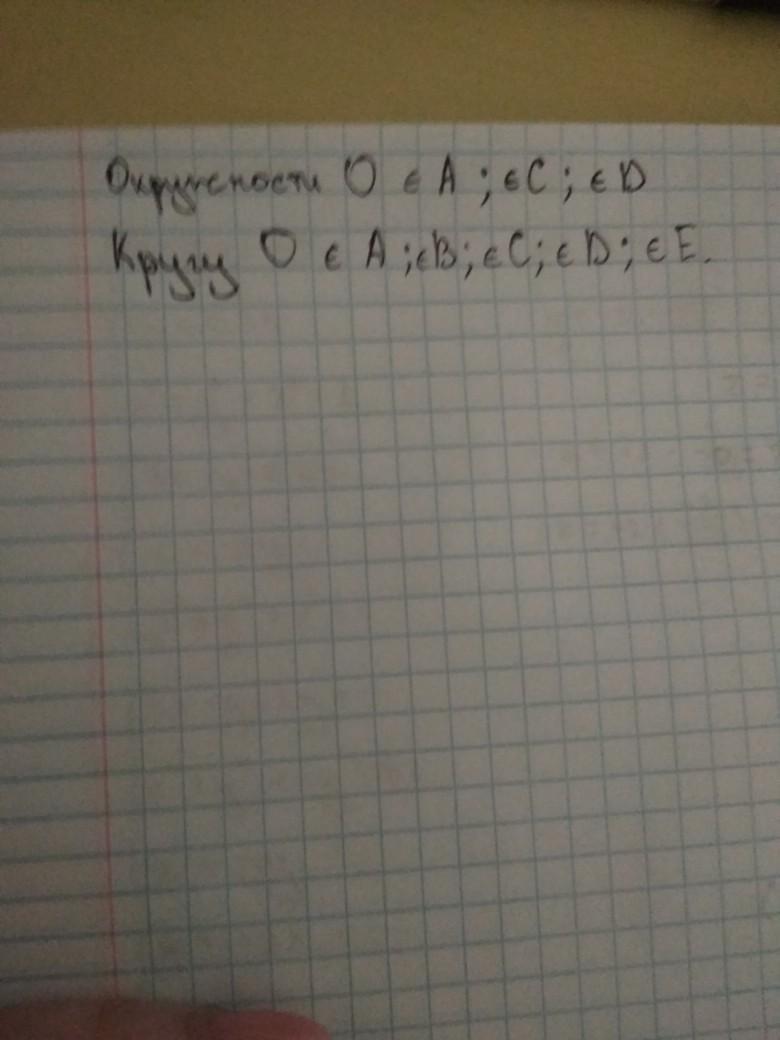 Окружности O ∈ A ; ∈ C ; ∈ D
Кругу O ∈ A ; ∈ B ; ∈ C ; ∈ D ; ∈ E.